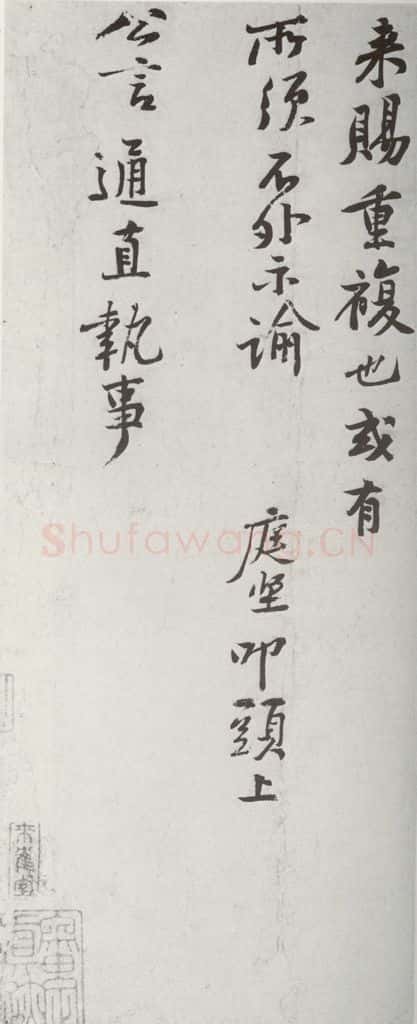 来賜重複也或有
所須不外示諭
庭坚叩頭上
公言通直執事
Shufawang.CN